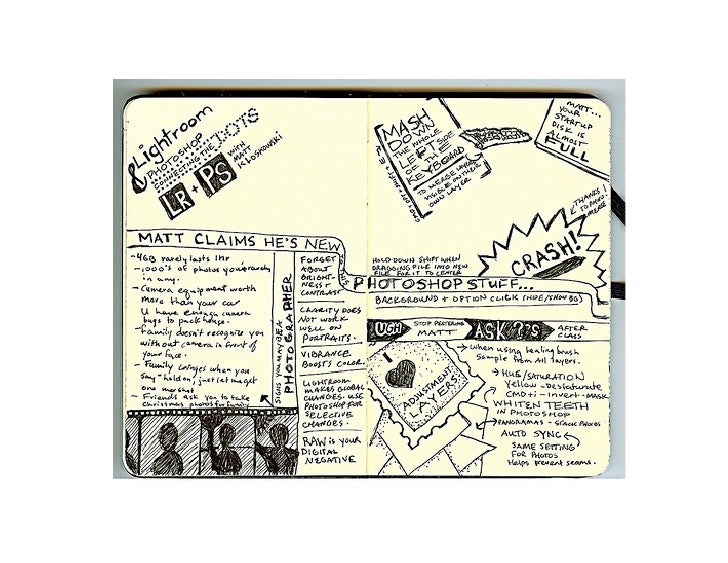 Lightroom
& PHOTOSHOP
CONNECTING THE DOTS
WITH
MATT
KLOSKOWSKI
LR + PS
MATT CLAIMS HE'S NEW
TO THIS
PHOTOSHOP STUFF...
- 4GB rarely lasts 1hr
- 1000's of photos you're rarely
in any.
- Camera equipment worth
more than your car
U have enough camera
bags to pack house.
- Family doesn't recognize you
without camera in front of
your face.
- Family cringes when you
say "hold on, just let me get
one more shot
- Friends ask you to take
christmas photos for family
SIGNS YOU MAY BE A
PHOTOGRAPHER
FORGET
ABOUT
BRIGHT-
NESS +
CONTRAST
CLARITY DOES
NOT WORK
WELL ON
PORTRAITS.
VIBRANCE
BOOSTS COLOR.
LIGHTROOM
MAKES GLOBAL
CHANGES. USE
PHOTOSHOP FOR
SELECTIVE
CHANGES.
RAW is your
DIGITAL
NEGATIVE
MASH
DOWN
THE WHOLE
LEFT SIDE
OF THE
KEYBOARD
TO MERGE LAYERS
VISIBLE ON THEIR
OWN LAYER
CMD + OPT + SHIFT + E
MATT...
YOUR
STARTUP
DISK IS
ALMOST
FULL
THANKS
CRASH!
HOLD DOWN SHIFT WHEN
DRAGGING FILE INTO NEW
FILE FOR IT TO CENTER
BACKGROUND + OPTION CLICK (HIDE/SHOW BG)
UGH
STOP PESTERING
MATT
ASK ?'S
AFTER
CLASS
I
ADJUSTMENT
LAYERS!
when using healing brush
sample from all layers.
HUE/SATURATION
Yellow - Desaturate
CMD + i - Invert - MASK
WHITEN TEETH
IN PHOTOSHOP
PANORAMAS - STACK PHOTOS
AUTO SYNC
SAME SETTING
FOR PHOTOS
Helps prevent seams.